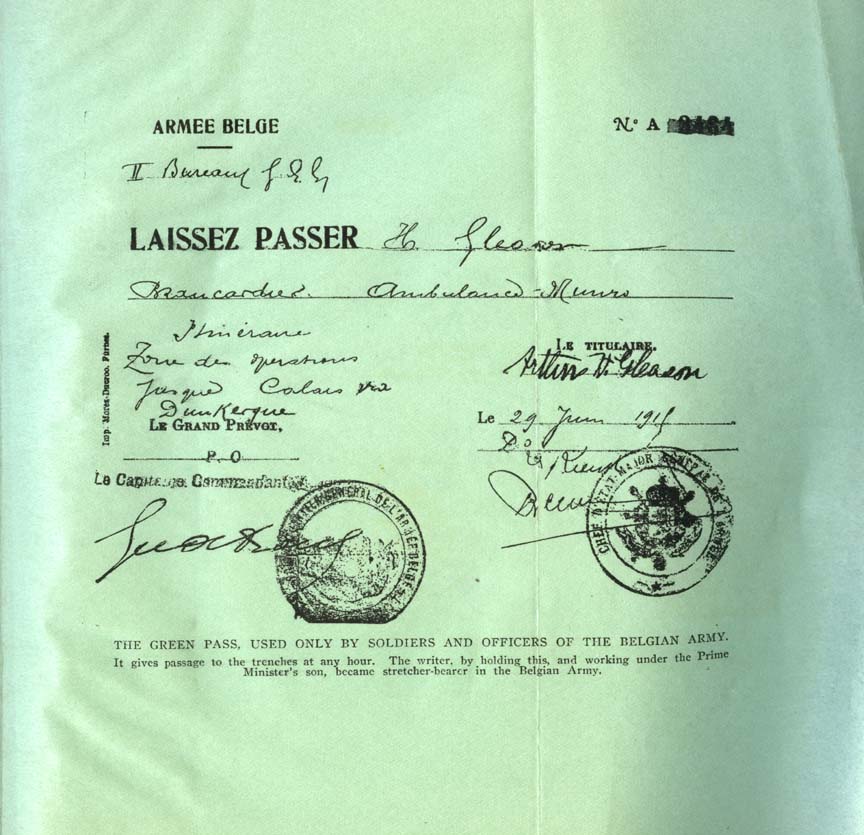 ARMEE BELGE
N.° A
II Bureau G.E.G
LAISSEZ PASSER H Gleason
Brancardier. Ambulance-Munro
Itinéraire
Zone des operations
Jusque Calais via
Dunkerque
LE GRAND PRÉVOT,
P. O
Le Capitaine Commandant
Imp. Mores-Ducroo. Furnes.
LE TITULAIRE,
Arthur H. Gleason
Le 29 Juin 1915
QUARTIER GENERAL DE L'ARMÉE BELGE
CHEF D'ETAT MAJOR GENERAL DE L'ARMEE
THE GREEN PASS, USED ONLY BY SOLDIERS AND OFFICERS OF THE BELGIAN ARMY.
It gives passage to the trenches at any hour. The writer, by holding this, and working under the Prime
Minister's son, became stretcher-bearer in the Belgian Army.